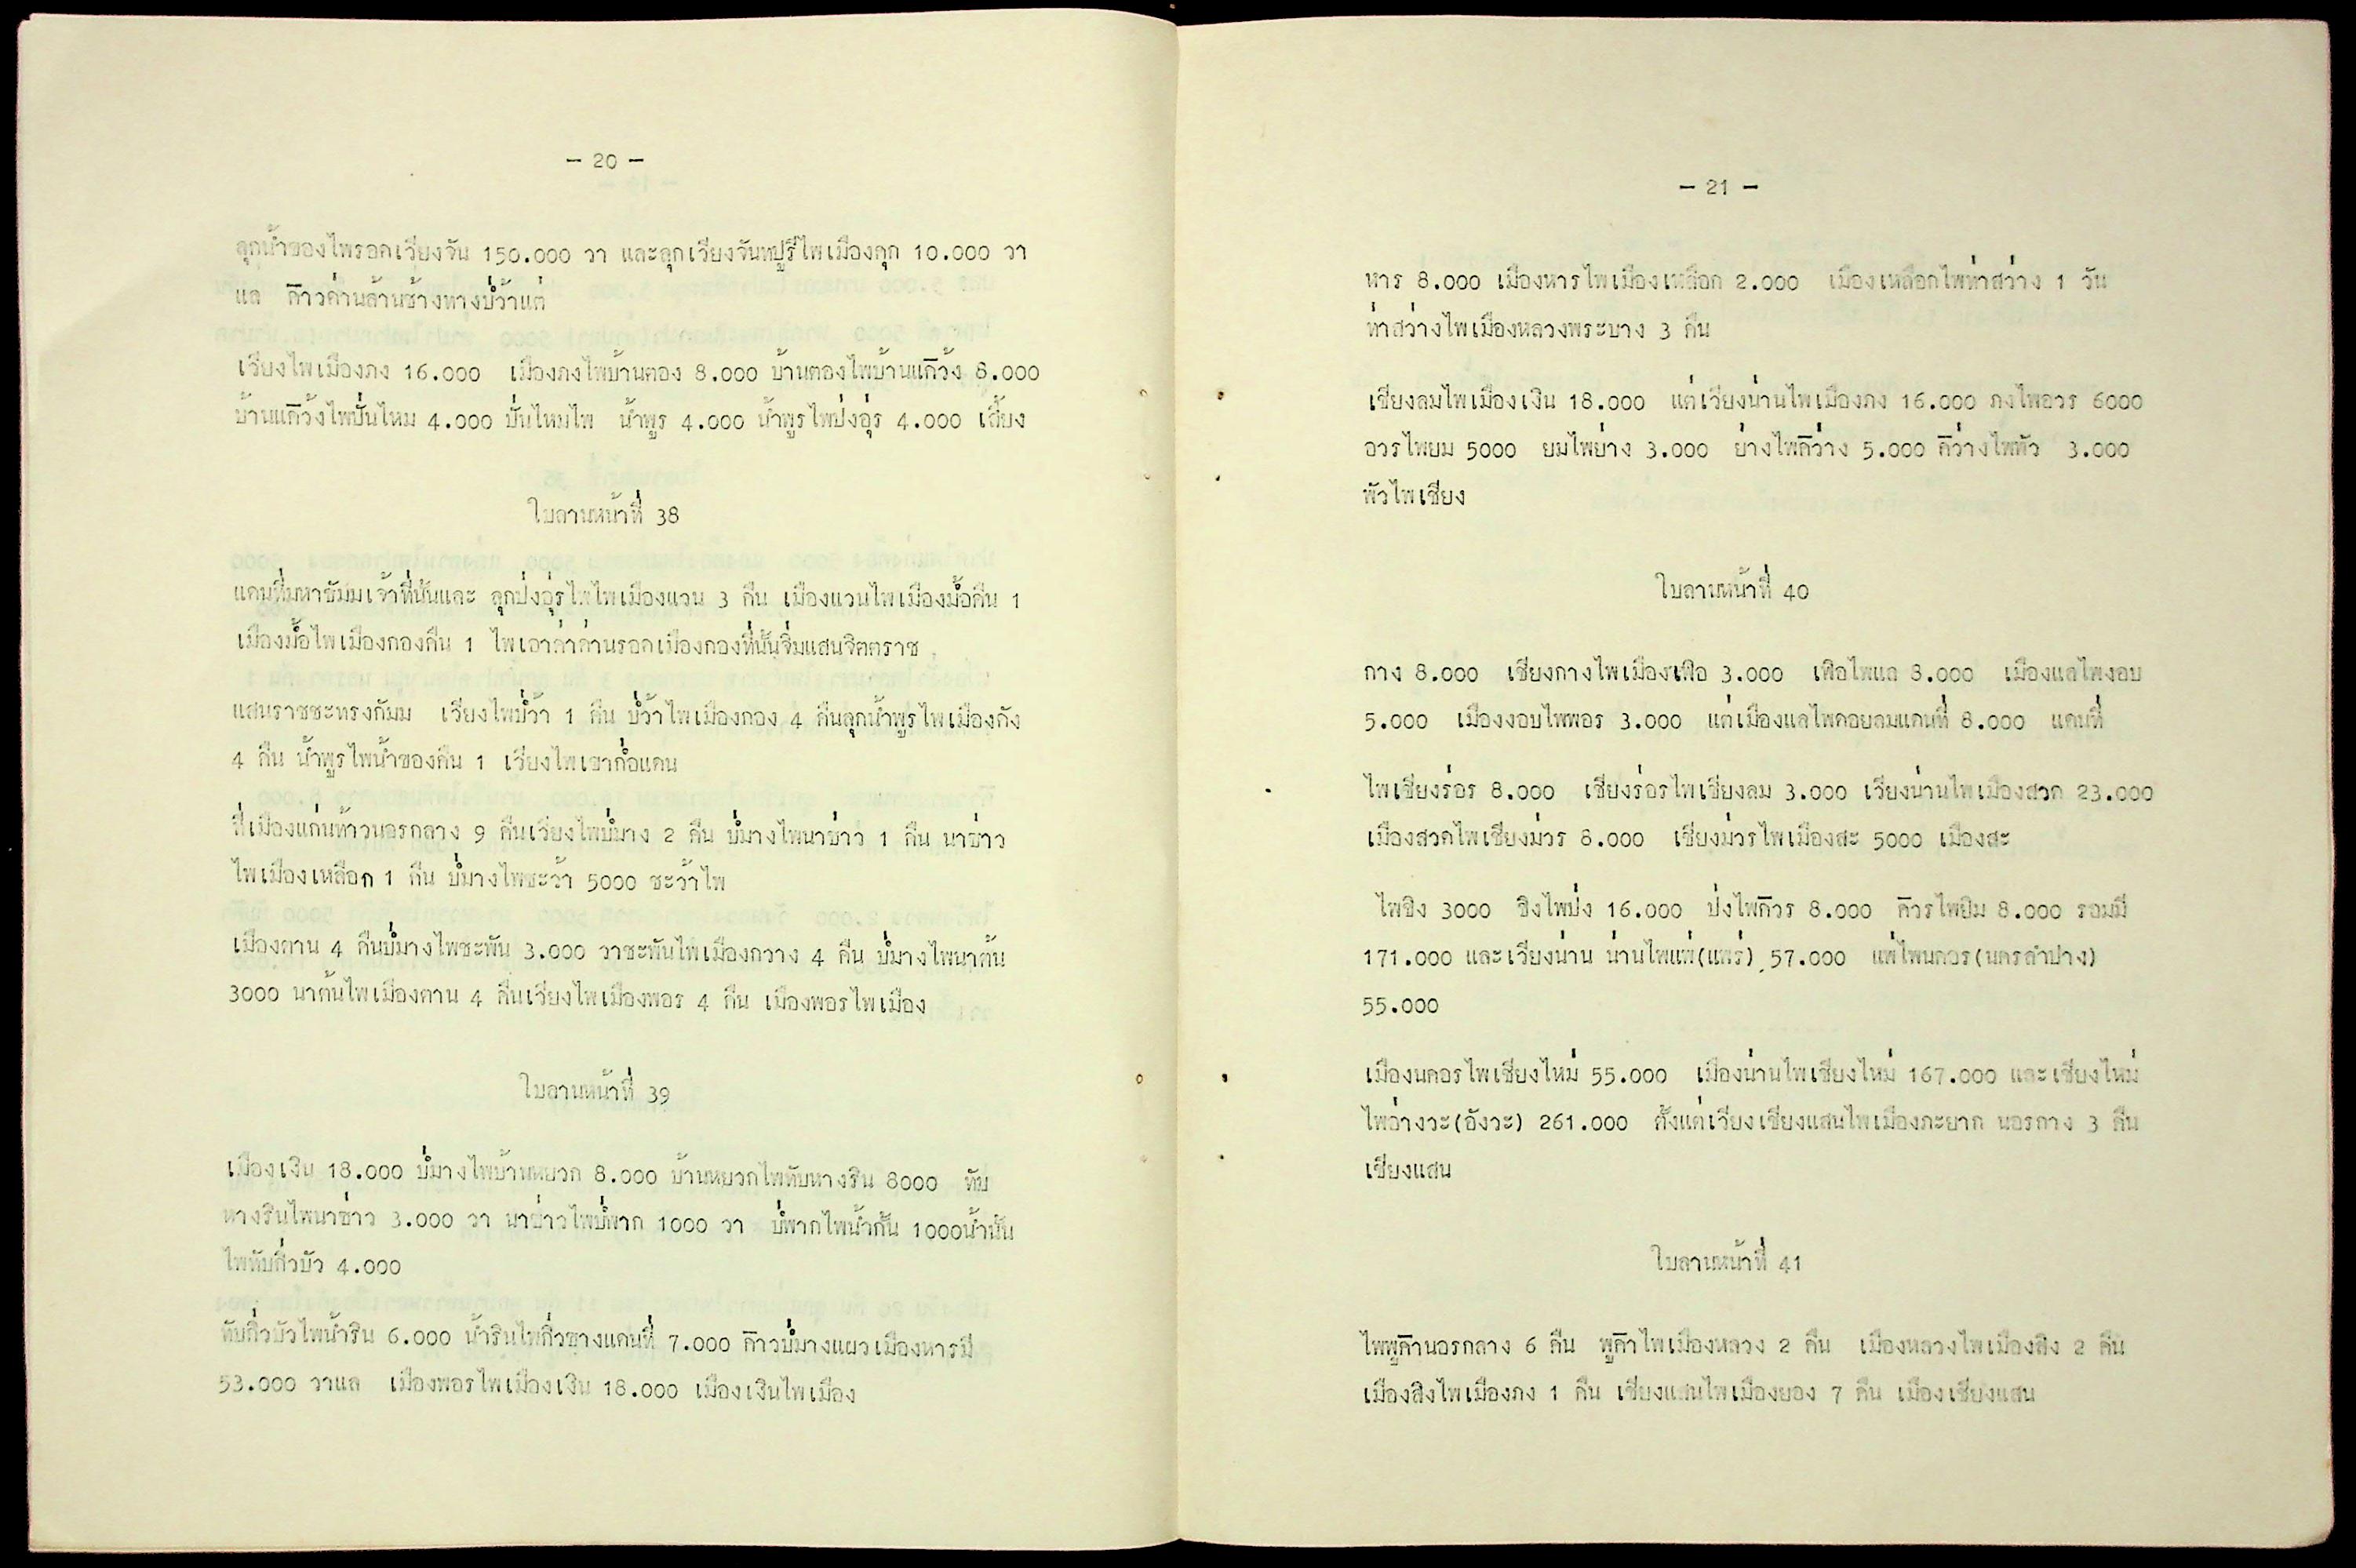 - 20 -
ลุกน้ำของไพรอดเวียงจัน 150.000 วา และลุกเวียงจันทปูรีไพเมืองคุก 10.000 วา
แล ก๊าวด่านล้านช้างทางบํ่ว้าแต่
เวียงไพเมืองภง 16.000 เมืองภงไพบ้านตอง 8.000 บ้านตองไพบ้านแก๊วัง 8.000
บ้านแก๊วังไพปั่นไหม 4.000 ปั่นไหมไพ น้ำพูร 4.000 น้ำพูรไพป่งอุ่ร 4.000 เสี้ยง
ใบลานหน้าที่ 38
แดนที่มหาธัมมเจ้าที่นั้นและ ลุกป่งอุ่รไพไพเมืองแวน 3 คืน เมืองแวนไพเมืองม้อคืน 1
เมืองม้อไพเมืองกองคืน 1 ไพเอาด่าด่านรอดเมืองกองที่นั้นจิ่มแสนจิตตราช
แสนราชชะทรงกัมม เวียงไพบํ่ว้า 1 คืน บํ่ว้าไพเมืองกอง 4 คืนลุกน้ำพูรไพเมืองกัง
4 คืน น้ำพูรไพน้ำของคืน 1 เวียงไพเขาก้อแดน
ที่เมืองแก่นท้าวนอรกลาง 9 คืนเวียงไพบํ่มาง 2 คืน บํ่มางไพนาซ่าว 1 คืน นาซ่าว
ไพเมืองเหลือก 1 คืน บํ่มางไพชะว้า 5000 ชะว้าไพ
เมืองตาน 4 คืนบํ่มางไพชะพัน 3.000 วาชะพันไพเมืองกวาง 4 คืน บํ่มางไพนาต้น
3000 นาต้นไพเมืองตาน 4 คืนเวียงไพเมืองพอร 4 คืน เมืองพอรไพเมือง
ใบลานหน้าที่ 39
เมืองเงิน 18.000 บํ่มางไพบ้านหยวก 8.000 บ้านหยวกไพทับหางริน 8000 ทับ
หางรินไพนาซ่าว 3.000 วา นาซ่าวไพบํ่พาก 1000 วา บํ่พากไพน้ำกั้น 1000น้ำนั้น
ไพทับกิ่วบัว 4.000
ทับกิ่วบัวไพน้ำริน 6.000 น้ำรินไพกิ่วขางแดนที่ 7.000 ก๊าวบํ่มางแผวเมืองหารมี
53.000 วาแล เมืองพอรไพเมืองเงิน 18.000 เมืองเงินไพเมือง
- 21 -
หาร 8.000 เมืองหารไพเมืองเหลือก 2.000 เมืองเหลือกไพท่าสว่าง 1 วัน
ท่าสว่างไพเมืองหลวงพระบาง 3 คืน
เชียงลมไพเมืองเงิน 18.000 แต่เวียงน่านไพเมืองภง 16.000 ภงไพอวร 6000
อวรไพยม 5000 ยมไพย่าง 3.000 ย่างไพกิว่าง 5.000 กิว่างไพทัว 3.000
พัวไพเชียง
ใบลานหน้าที่ 40
กาง 8.000 เชียงกางไพเมืองเพือ 3.000 เพือไพแล 8.000 เมืองแลไพงอบ
5.000 เมืองงอบไพพอร 3.000 แต่เมืองแลไพดอยลมแดนที่ 8.000 แดนที่
ไพเชียงร่อร 8.000 เชียงร่อรไพเชียงลม 3.000 เวียงน่านไพเมืองสวด 23.000
เมืองสวดไพเชียงม่วร 8.000 เชียงม่วรไพเมืองสะ 5000 เมืองสะ
ไพขิง 3000 ขิงไพป่ง 16.000 ป่งไพคิวร 8.000 คิวรไพยิม 8.000 รอมมี
171.000 และเวียงน่าน น่านไพแพ่(แพร่) 57.000 แพ่ไพนคอร(นครลำปาง)
55.000
เมืองนคอรไพเชียงใหม่ 55.000 เมืองน่านไพเชียงใหม่ 167.000 และเชียงใหม่
ไพอ่างวะ(อังวะ) 261.000 ตั้งแต่เวียงเชียงแสนไพเมืองภะยาก นอรกาง 3 คืน
เชียงแสน
ใบลานหน้าที่ 41
ไพพูค๊านอรกลาง 6 คืน พูค๊าไพเมืองหลวง 2 คืน เมืองหลวงไพเมืองสิง 2 คืน
เมืองสิงไพเมืองภง 1 คืน เชียงแสนไพเมืองยอง 7 คืน เมืองเชียงแสน